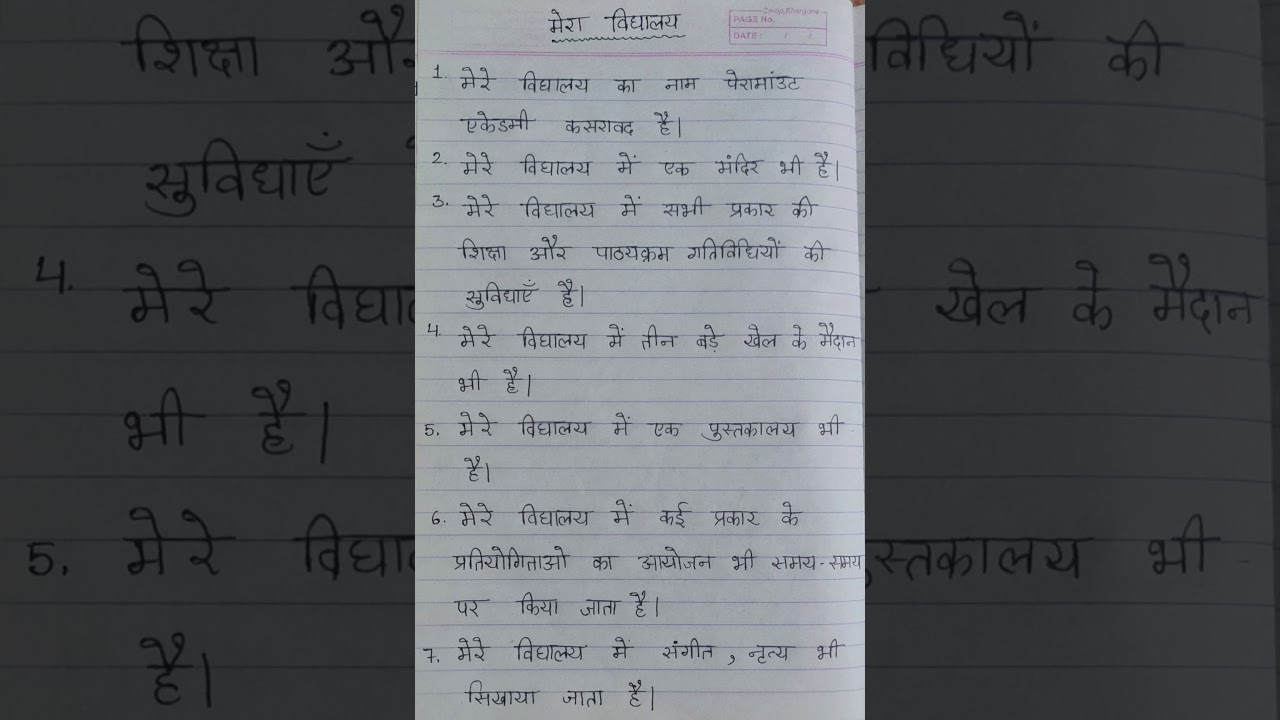 मेरा विद्यालय
Co-op, Khargone
PAGE No.
DATE: / /
1. मेरे विद्यालय का नाम पेरामांउट
एकेडमी कसरावद है।
2. मेरे विद्यालय में एक मंदिर भी है।
3. मेरे विद्यालय में सभी प्रकार की
शिक्षा और पाठयक्रम गतिविधियों की
सुविधाएँ है।
4. मेरे विद्यालय में तीन बड़े खेल के मैदान
भी है।
5. मेरे विद्यालय में एक पुस्तकालय भी
है।
6. मेरे विद्यालय में कई प्रकार के
प्रतियोगिताओ का आयोजन भी समय-समय
पर किया जाता है।
7. मेरे विद्यालय में संगीत, नृत्य भी
सिखाया जाता है।